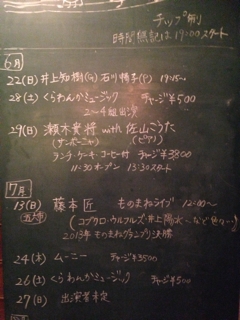 チップ制
時間無記は 19:00スタート
6月
22(日) 井上知樹(G) 石川暢子(P) 19:15〜
28(土) くらわんかミュージック チャージ¥500
2〜4組出演
29(日) 瀬木貴将 with 佐山こうた
(サンポーニャ) (ピアノ)
ランチ・ケーキ・コーヒー付 チャージ¥3800
11:30オープン 13:30スタート
7月
13(日) 藤本匠 ものまねライブ 12:00〜
(コブクロ・ウルフルズ・井上陽水・など
2013年 ものまねグランプリ決勝
24(木) ムーニー チャージ¥3500
26(土) くらわんかミュージック チャージ¥500
27(日) 出演者未定